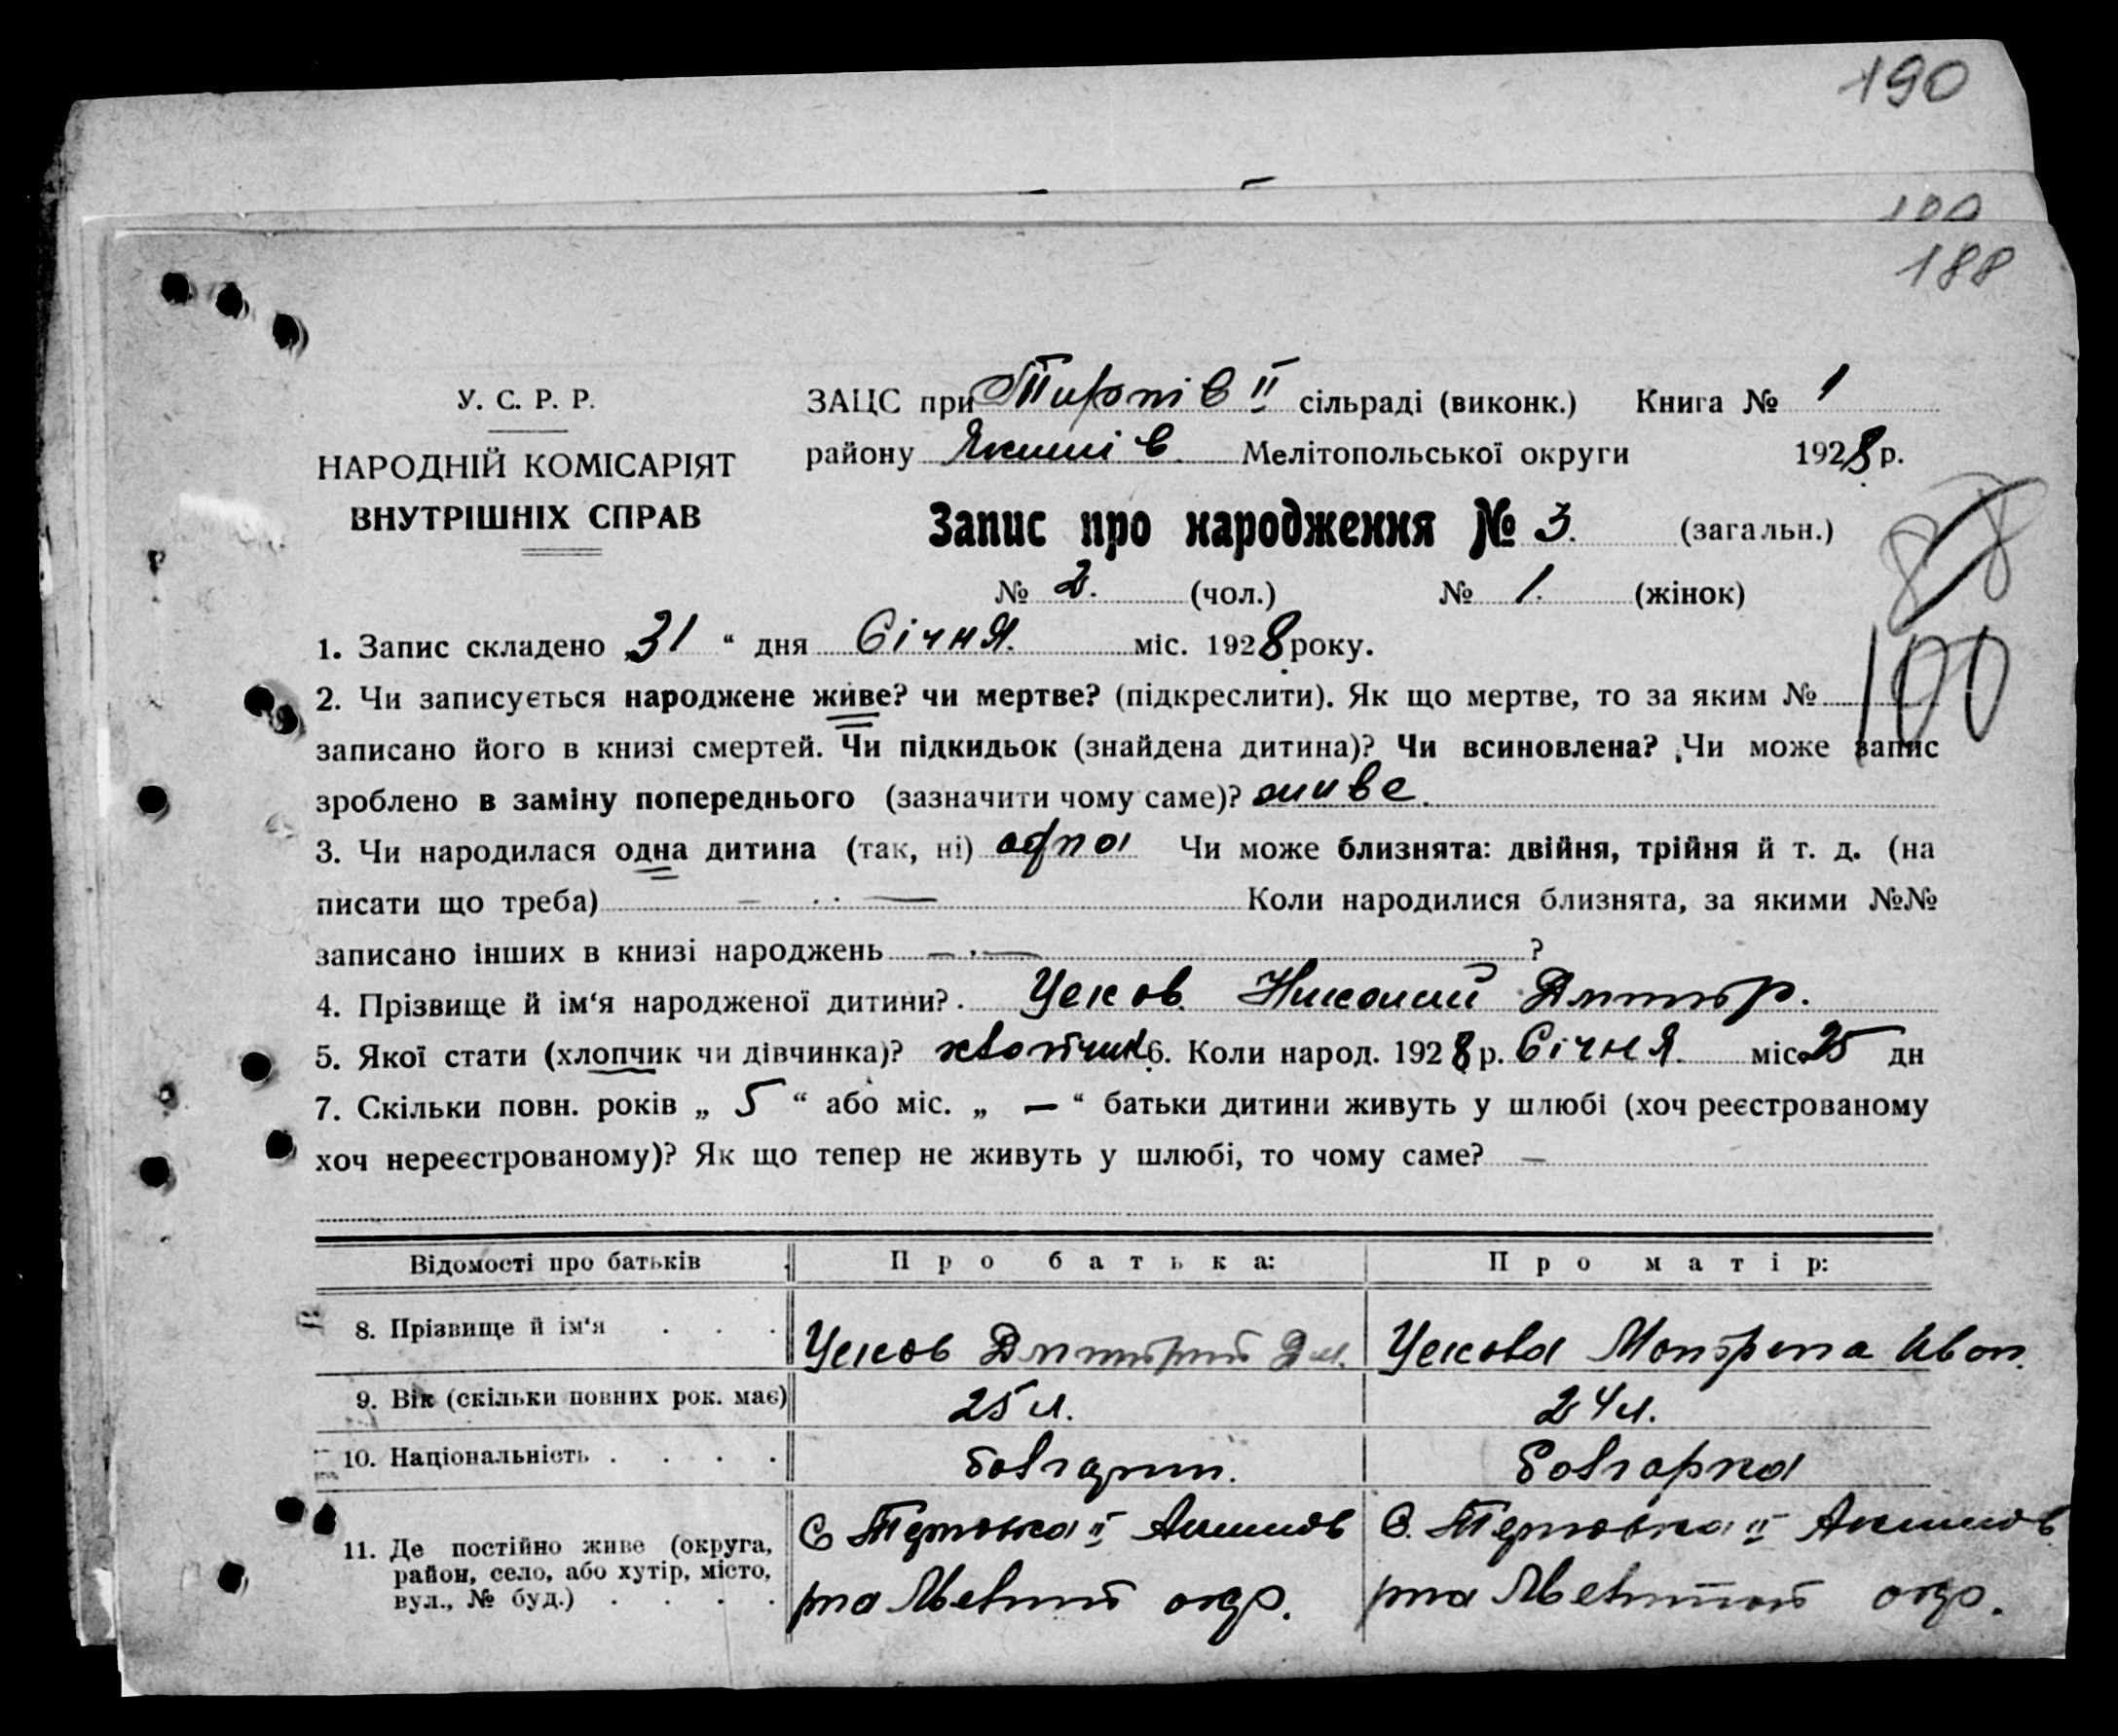 190
188
У. С. Р. Р.
НАРОДНІЙ КОМІСАРІЯТ
ВНУТРІШНІХ СПРАВ
ЗАЦС при II сільраді (виконк.) Книга № 1
району Якимів Мелітопольської округи 1928 р.
Запис про народження № 3. (загальн.)
№ 2. (чол.) № 1. (жінок)
88
100
1. Запис складено 31 “ дня Січня. міс. 1928 року.
2. Чи записується народжене живе? чи мертве? (підкреслити). Як що мертве, то за яким №
записано його в книзі смертей. Чи підкидьок (знайдена дитина)? Чи всиновлена? Чи може запис
зроблено в заміну попереднього (зазначити чому саме)? живе.
3. Чи народилася одна дитина (так, ні) одна Чи може близнята: двійня, трійня й т. д. (на
писати що треба) — Коли народилися близнята, за якими №№
записано інших в книзі народжень — ?
4. Прізвище й ім‘я народженої дитини? Усков Николай Дмитр.
5. Якої стати (хлопчик чи дівчинка)? хлопчик 6. Коли народ. 1928 р. Січня. міс. 25 дн
7. Скільки повн. років „ 5 “ або міс. „ — “ батьки дитини живуть у шлюбі (хоч реєстрованому
хоч нереєстрованому)? Як що тепер не живуть у шлюбі, то чому саме? —
Відомості про батьків Про батька: Про матір:
8. Прізвище й ім‘я . . . Усков Дмитрий Дм. Ускова Мотрена Иван.
9. Вік (скільки повних рок. має) 25 л. 24 л.
10. Національність . . . . болгарин. болгарка
11. Де постійно живе (округа, район, село, або хутір, місто, вул., № буд.) . . . .
С Терновка II Акимов С. Терновка II Акимов
рна Мелит окр. рна Мелитоп окр.